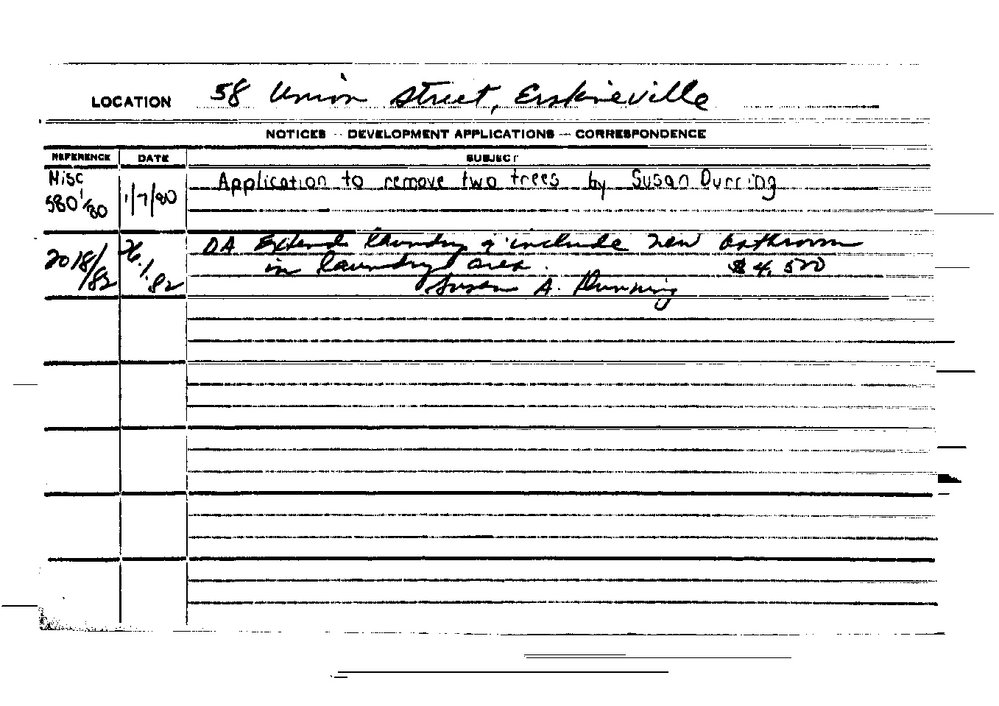 LOCATION 58 Union Street, Erskineville
NOTICES - DEVELOPMENT APPLICATIONS - CORRESPONDENCE
REFERENCE DATE SUBJECT
Misc 580/80 1/7/80 Application to remove two trees by Susan Durring
2018/82 26.1.82 DA Extend laundry & include new bathroom
in laundry area. $4,500
Susan A. Dunning